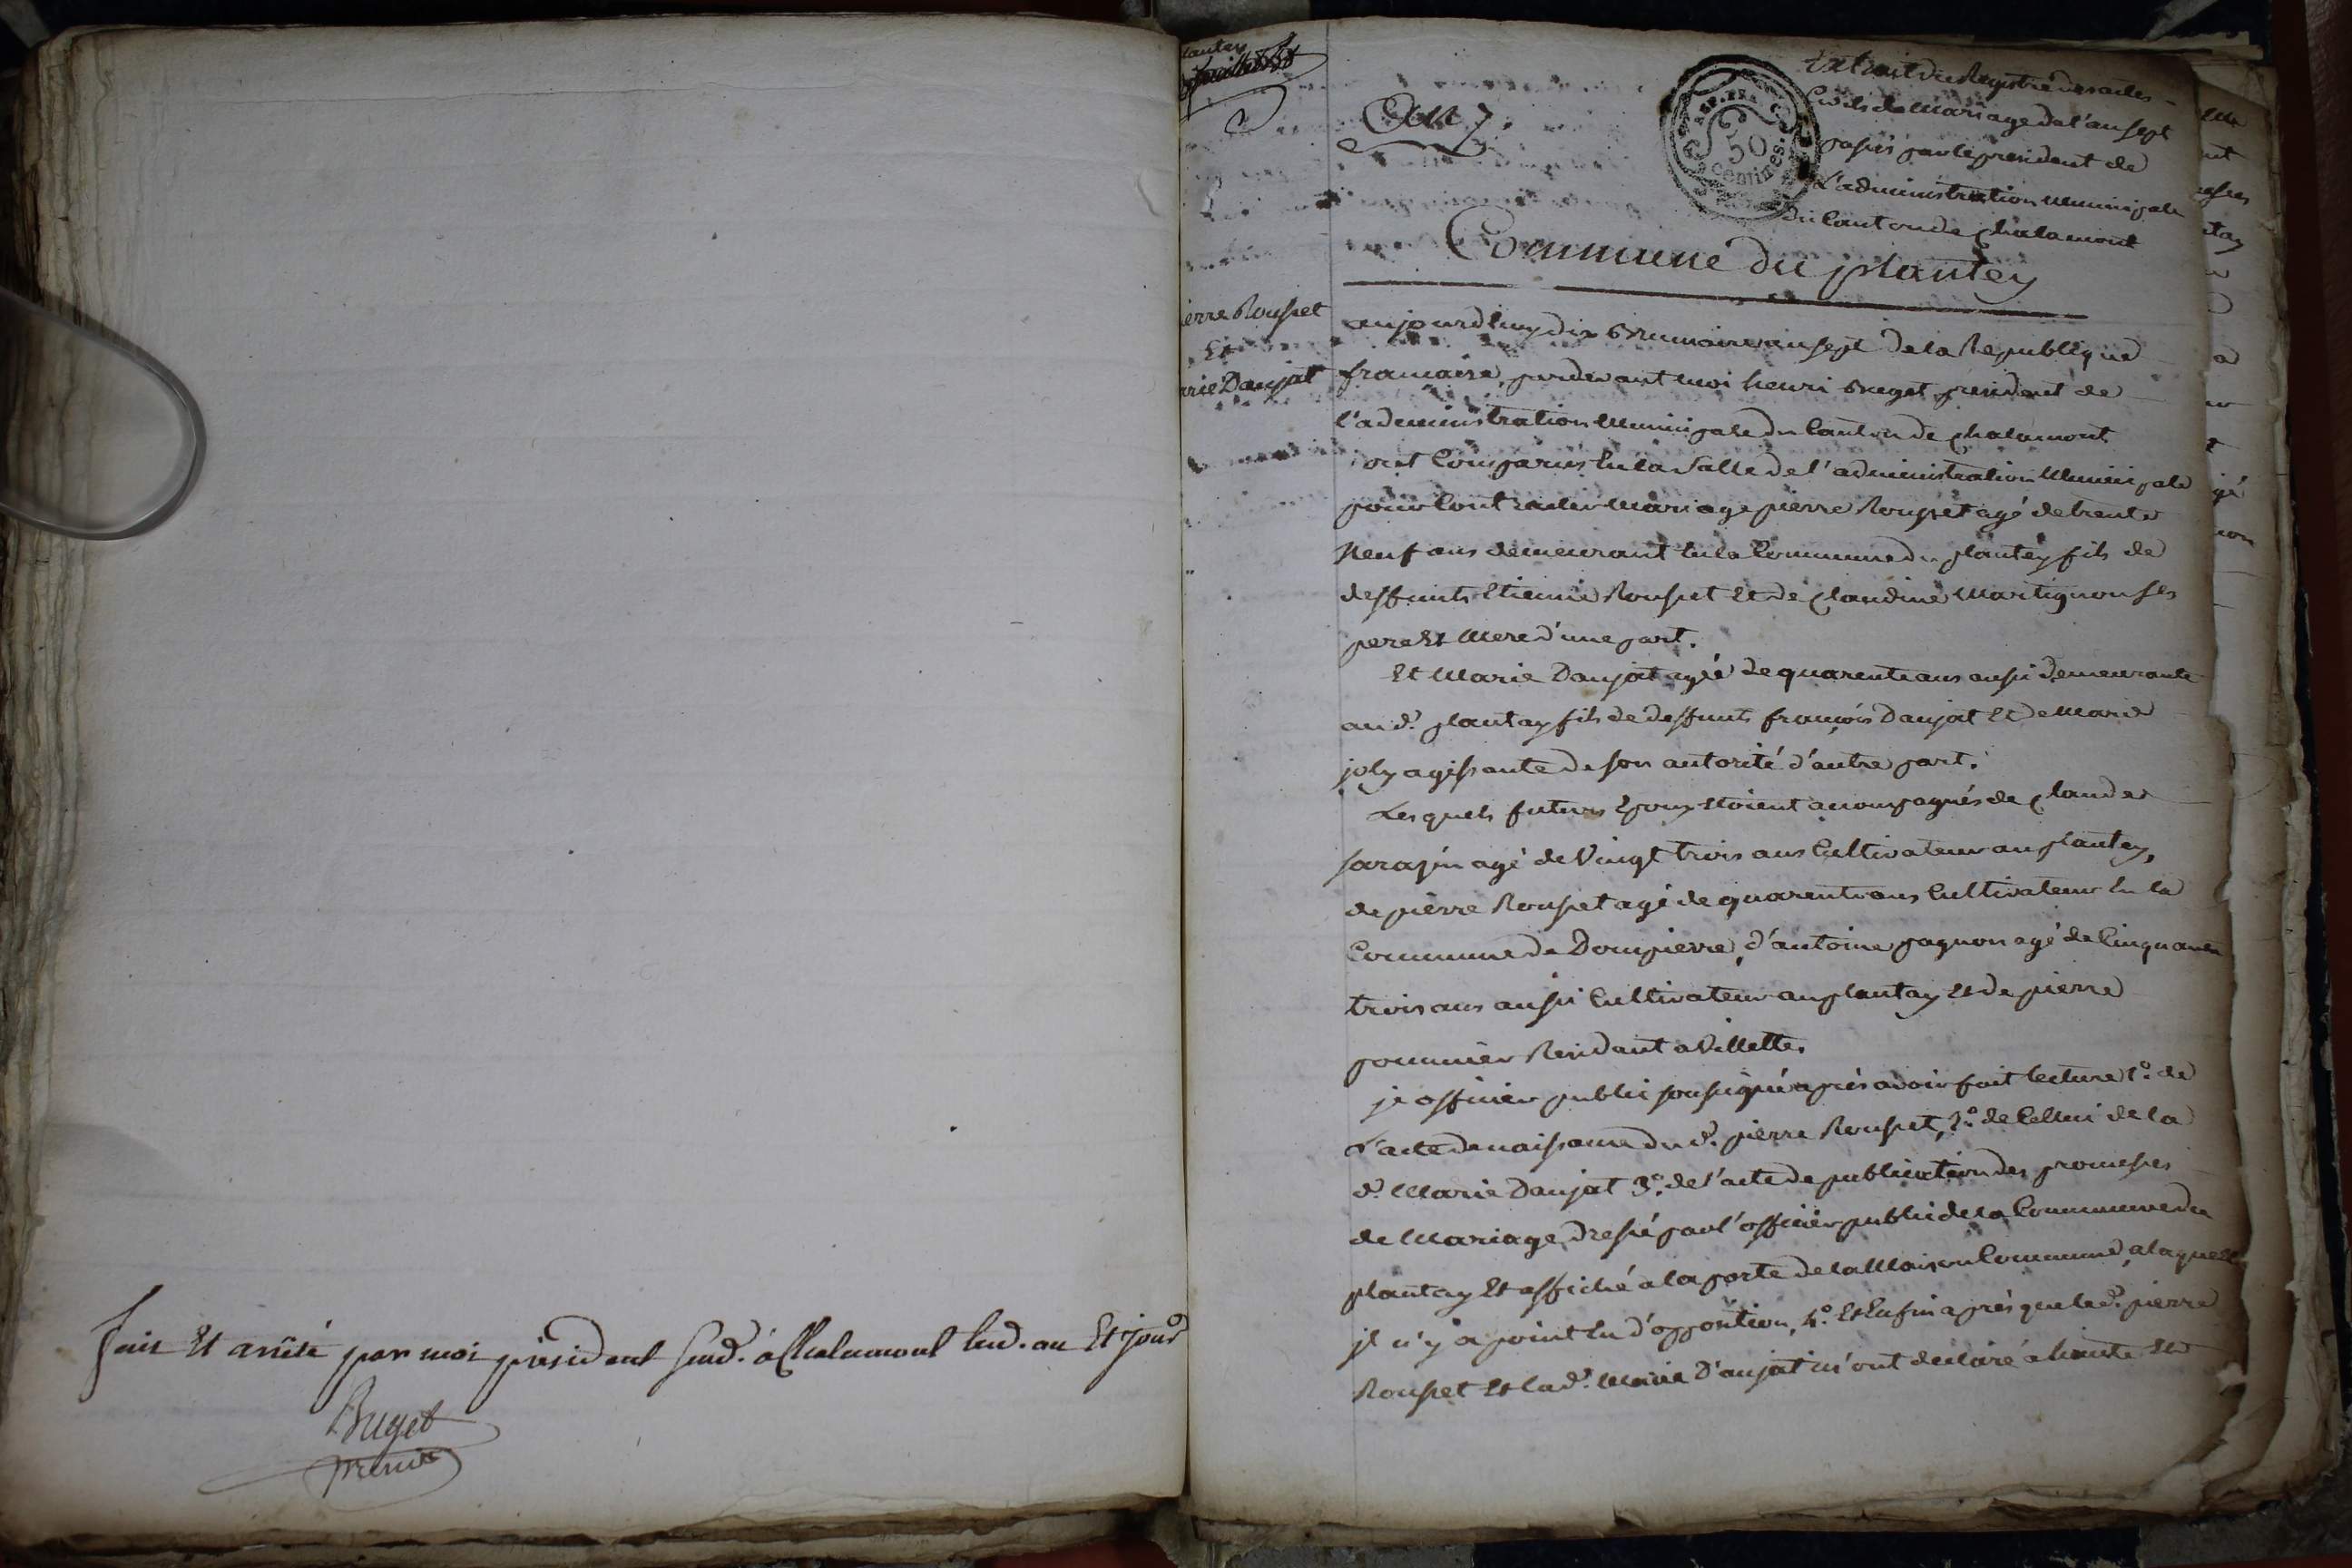 fait Et arrêté par moi président susd. à Chalamont lesd. an Et jour
Buget
présid
An 7.
50
centimes
Extrait du Registre des actes
Civils de Mariage de l'an sept
passés par le president de
L'administration Municipale
du Canton de Chalamont
Commune du plantey
ierre Rousset
Et
arie Daujat
aujourdhuy dix Brumaire an sept de la Republique
francaise, pardevant moi henri Buget president de
l'administration Municipale du Canton de chalamont
ont Comparus En la Salle de l'administration Municipale
pour Contracter Mariage pierre Rousset agé de trente
Neuf ans demeurant En la Commune du plantey fils de
deffunts Etienne Rousset Et de Claudine Martignon Ses
pere Et Mere d'une part.
Et Marie Daujat agée de quarente ans aussi demeurante
au d. plantay fils de deffunts françois Daujat Et de Marie
joly agissante de son autorité d'autre part.
Lesquels futurs Epoux Etoient acompagnés de Claude
Sarasin agé de Vingt trois ans Cultivateur au plantey,
de pierre Rousset agé de quarente ans Cultivateur En la
Commune de Dompierre, d'antoine gagnon agé de Cinquante
trois ans aussi Cultivateur au plantay Et de pierre
pommier Residant a Villette.
je officier public soussigné après avoir fait lecture 1°. de
L'acte de naissance du d. pierre Rousset, 2°. de Celluí de la
d. Marie Daujat 3°. de l'acte de publication des promesses
de Mariage dressé par l'officier public de la Commune du
plantay Et affiché a la porte de la Maison Commune, a laquelle
jl n'y a point Eu d'opposition, 4°. Et Enfin après que le d. pierre
Rousset Et la d. Marie D'aujat m'ont declaré a haute Et